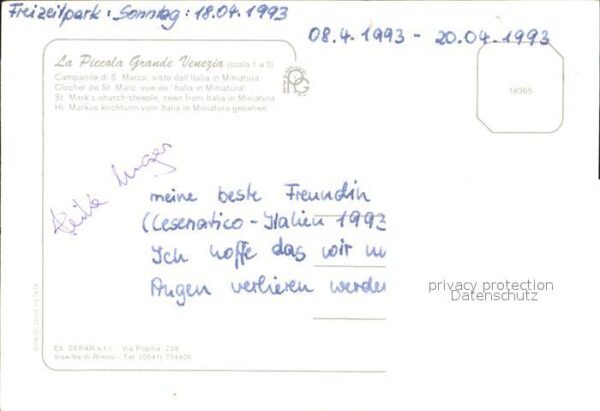 Freizeitpark: Sonntag: 18.04.1993
08.4.1993 - 20.04.1993
La Piccola Grande Venezia (scala 1 a 5)
Campanile di S. Marco, visto dall'Italia in Miniatura
Clocher de St. Marc, vue de "Italia in Miniatura"
St. Mark's church-steeple, seen from Italia in Miniatura
Hl. Markus kirchturm vom Italia in Miniatura gesehen
18365
meine beste Freundin
(Cesenatico - Italien 1993
Ich hoffe das wir nu
Augen verlieren werde
privacy protection
Datenschutz
Ed. SEPAR s.r.l. - Via Popilia, 239
Viserba di Rimini - Tel. (0541) 734406